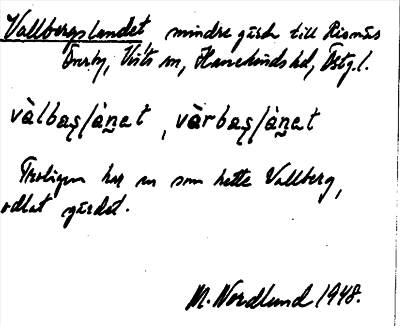 Vallbergslandet mindre gärde till Risnäs
Överby, Vists sn, Hanekinds hd, Östg.l.
vàlbaʂl̀àn̠et, vàrbaʂl̀àn̠et
Troligen har en som hette Vallberg,
odlat gärdet.
M. Nordlund 1948.